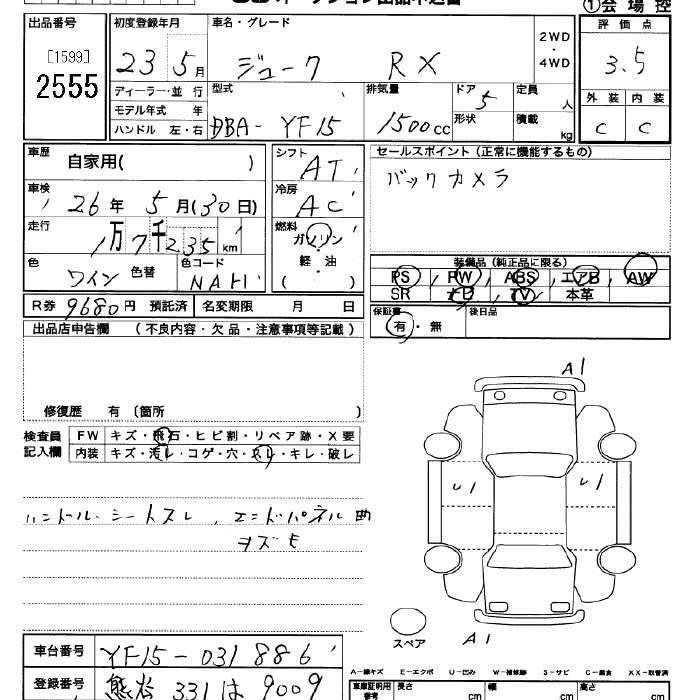 ①会場控
出品番号 初度登録年月 車名・グレード 2WD・4WD 評価点
[1599]
2555
23 5月 ジューク RX 3.5
ディーラー・並行 型式 排気量 ドア 定員 外装 内装
モデル年式 年 5 人
ハンドル 左・右 DBA-YF15 1500cc 形状 積載 kg C C
車歴 自家用( ) シフト AT セールスポイント(正常に機能するもの)
車検 26年 5月(30日) 冷房 AC バックカメラ
走行 1万7千235km 燃料 ガソリン・軽・油( )
色 ワイン 色替 色コード NAH
装備品(純正品に限る)
PS PW ABS エアB AW
SR ナビ TV 本革
R券 9680円 預託済 名変期限 月 日 保証書 有・無 後日品
出品店申告欄 (不良内容・欠品・注意事項等記載)
修復歴 有 〔箇所 〕
検査員記入欄 FW キズ・飛石・ヒビ割・リペア跡・X要
内装 キズ・汚レ・コゲ・穴・スレ・キレ・破レ
ハンドル・シートスレ、エンドパネル曲
キズモ
A1
U1 U1
スペア A1
車台番号 YF15-031886
登録番号 熊谷 331 は 9009
A-線キズ E-エクボ U-凹み W-補修跡 S-サビ C-腐食 XX-取替済
車庫証明用参考 長さ cm 幅 cm 高さ cm